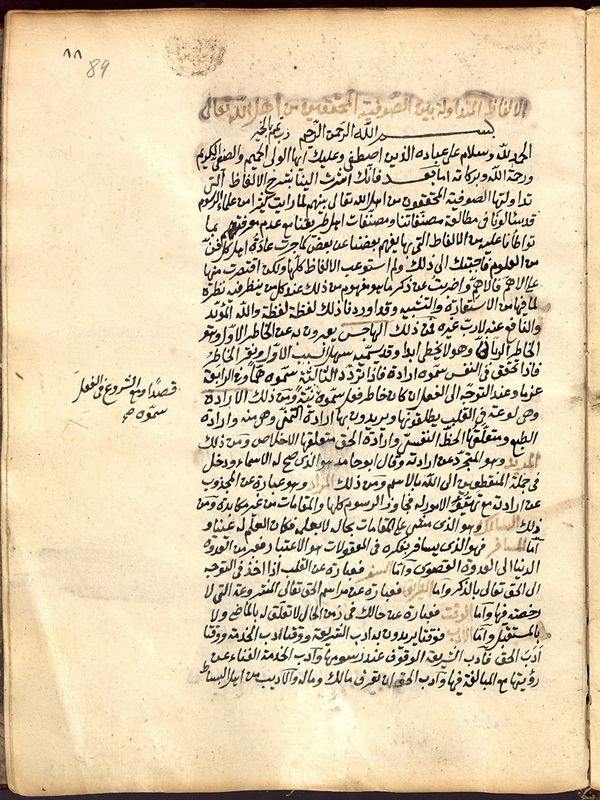 ٨٨
89
الالفاظ المتداولة بين الصوفية المحققين من اهل الله تعالى
بسم الله الرحمن الرحيم رب تمم بالخير
الحمد لله وسلام على عباده الذين اصطفى وعليك ايها الولى الحميم والصفى الكريم
ورحمة الله وبركاته اما بعد فانك اشرت الينا بشرح الالفاظ التى
تداولتها الصوفية المحققون من اهل الله تعالى بينهم لما رايت كثيرا من علماء الرسوم
قد سالونا فى مطالعة مصنفاتنا ومصنفات اهل طريقتنا مع عدم معرفتهم بما
تواطأنا عليه من الالفاظ التى بها يفهم بعضنا عن بعض كما جرت عادة اهل كل فن
من العلوم فاجبتك الى ذلك ولم استوعب الالفاظ كلها ولكن اقتصرت منها
على الاهم فالاهم واضربت عن ذكر ما هو مفهوم من ذلك عند كل من ينظر فيه نظرة
لما فيها من الاستعارة والتشبيه وقد اوردنا ذلك لفظة لفظة والله المؤيد
والنافع عنه لا رب غيره فمن ذلك الهاجس يعبرون به عن الخاطر الاول وهو
الخاطر الربانى وهو لا يخطئ ابدا وقد يسميه سهل السبب الاول ونقر الخاطر
فاذا تحقق فى النفس سموه ارادة فاذا تردد الثالثة سموه هما وفى الرابعة
عزما وعند التوجه الى الفعل ان كان خاطر فعل سموه نية ومن ذلك الارادة
قصدا ومع الشروع فى الفعل
سموه صح
وهى لوعة فى القلب يطلقونها ويريدون بها ارادة التمنى وهى منه وارادة
الطبع ومتعلقها الحظ النفسى وارادة الحق متعلقها الاخلاص ومن ذلك
المريد وهو المتجرد عن ارادته وقال ابو حامد هو الذى صح له الاسماء ودخل
فى جملة المنقطعين الى الله بالاسم ومن ذلك المراد وهو عبارة عن المجذوب
عن ارادته مع تهيؤ الامور له فجاوز الرسوم كلها والمقامات من غير مكابدة ومن
ذلك السالك وهو الذى مشى على المقامات بحاله لا بعلمه فكان العلم له عينا و
اما المسافر فهو الذى يسافر بفكره فى المعقولات وهو الاعتبار فعبر من العدوة
الدنيا الى العدوة القصوى واما السفر فعبارة عن القلب اذا اخذ فى التوجه
الى الحق تعالى بالذكر واما الطريق فعبارة عن مراسم الحق تعالى المشروعة التى لا
رخصة فيها واما الوقت فعبارة عن حالك فى زمن الحال لا تعلق له بالماضى ولا
بالمستقبل واما الادب فوقتا يريدون به ادب الشريعة ووقتا ادب الخدمة ووقتا
ادب الحق فادب الشريعة الوقوف عند رسومها وادب الخدمة الفناء عن
رؤيتها مع المبالغة فيها وادب الحق ان تعرف مالك وماله والاديب من اهل البساط